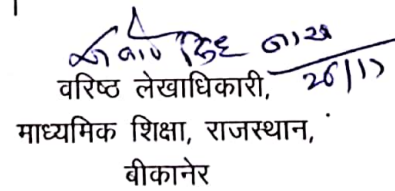 26/17
वरिष्ठ लेखाधिकारी,
माध्यमिक शिक्षा, राजस्थान,
बीकानेर